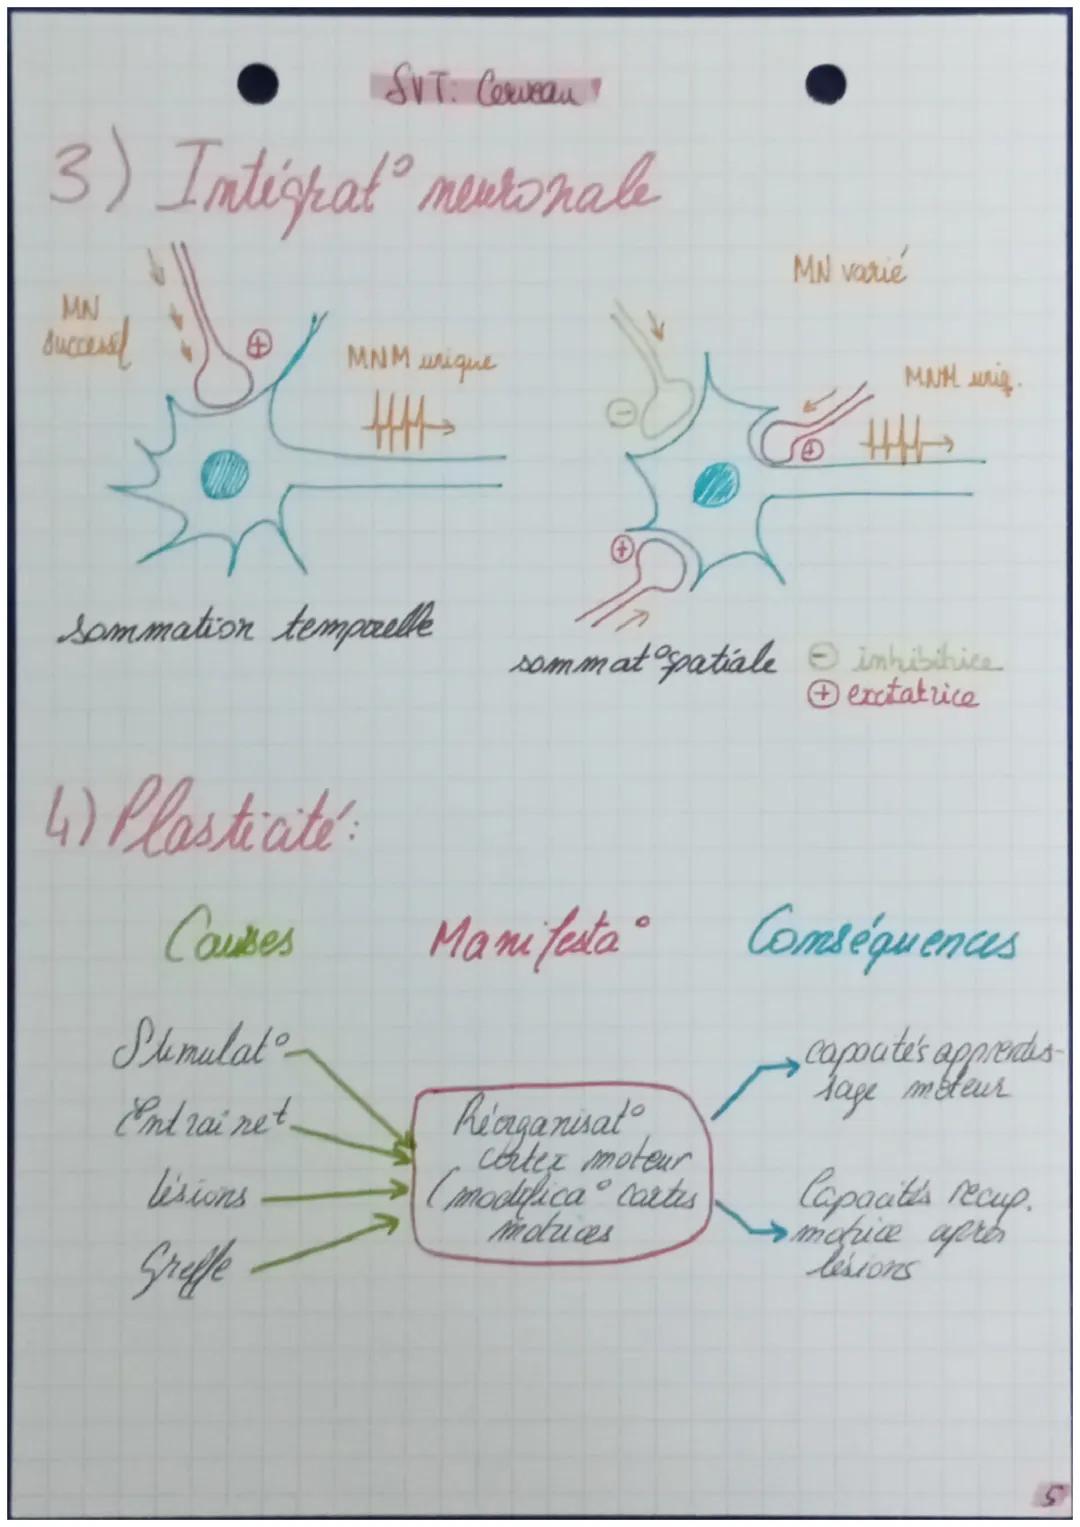 SVT: Cerveau
3) Intégrat° neuronale
MN
successif
⊕
MNM unique
MN varié
⊖
MNM uniq.
⊕
⊕
sommation temporelle
sommat° spatiale
⊖ inhibitrice
⊕ excitatrice
4) Plasticité:
Causes
Manifesta°
Conséquences
Stimulat°
Entrainet
lésions
Greffe
Réorganisat°
cortex moteur
(modifica° cartes
motrices
capacités apprentis-
sage moteur
Capacités recup.
motrice après
lésions
5